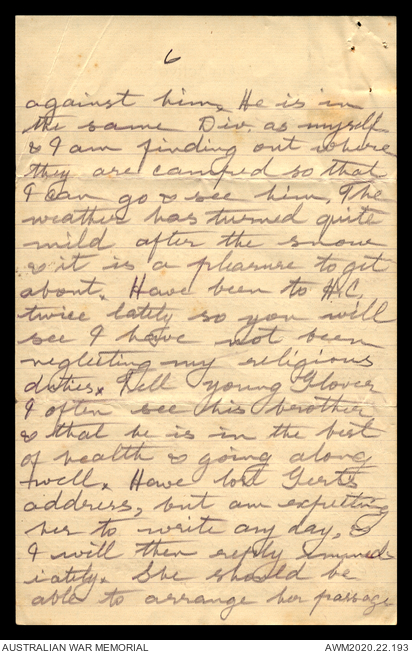 6
against him. He is in
the same Div. as myself
& I am finding out where
they are camped so that
I can go & see him. The
weather has turned quite
mild after the snow
& it is a pleasure to get
about. Have been to H.C.
twice lately so you will
see I have not been
neglecting my religious
duties. Tell young Glover
I often see his brother
& that he is in the best
of health & going along
well. Have lost Gert's
address, but am expecting
her to write any day, &
I will then reply immed-
iately. She should be
able to arrange her passage
AUSTRALIAN WAR MEMORIAL AWM2020.22.193